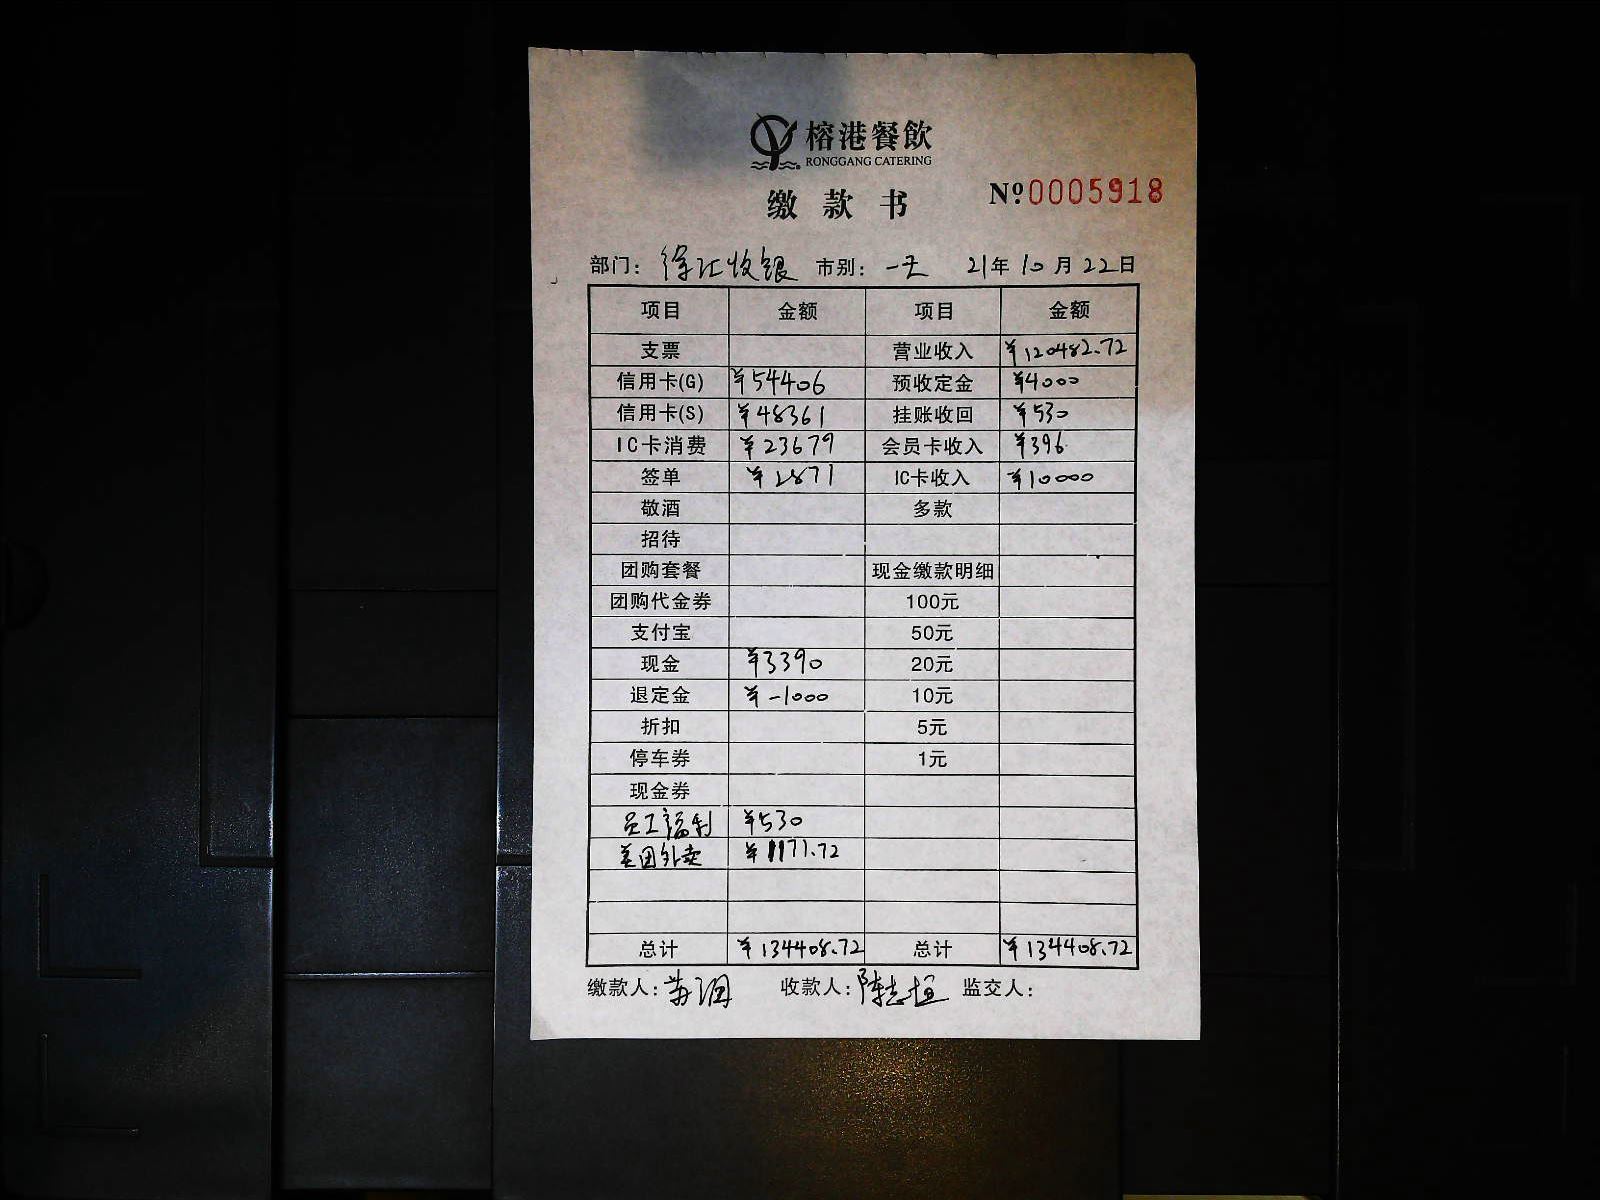 榕港餐飲
RONGGANG CATERING
缴款书
№0005918
部门：徐汇收银 市别：一天 21年10月22日
项目 金额 项目 金额
支票 营业收入 ¥120482.72
信用卡(G) ¥54406 预收定金 ¥4000
信用卡(S) ¥48361 挂账收回 ¥530
IC卡消费 ¥23679 会员卡收入 ¥396
签单 ¥2871 IC卡收入 ¥10000
敬酒 多款
招待
团购套餐 现金缴款明细
团购代金券 100元
支付宝 50元
现金 ¥3390 20元
退定金 ¥-1000 10元
折扣 5元
停车券 1元
现金券
员工福利 ¥530
美团外卖 ¥1171.72
总计 ¥134408.72 总计 ¥134408.72
缴款人： 收款人：陈志垣 监交人：